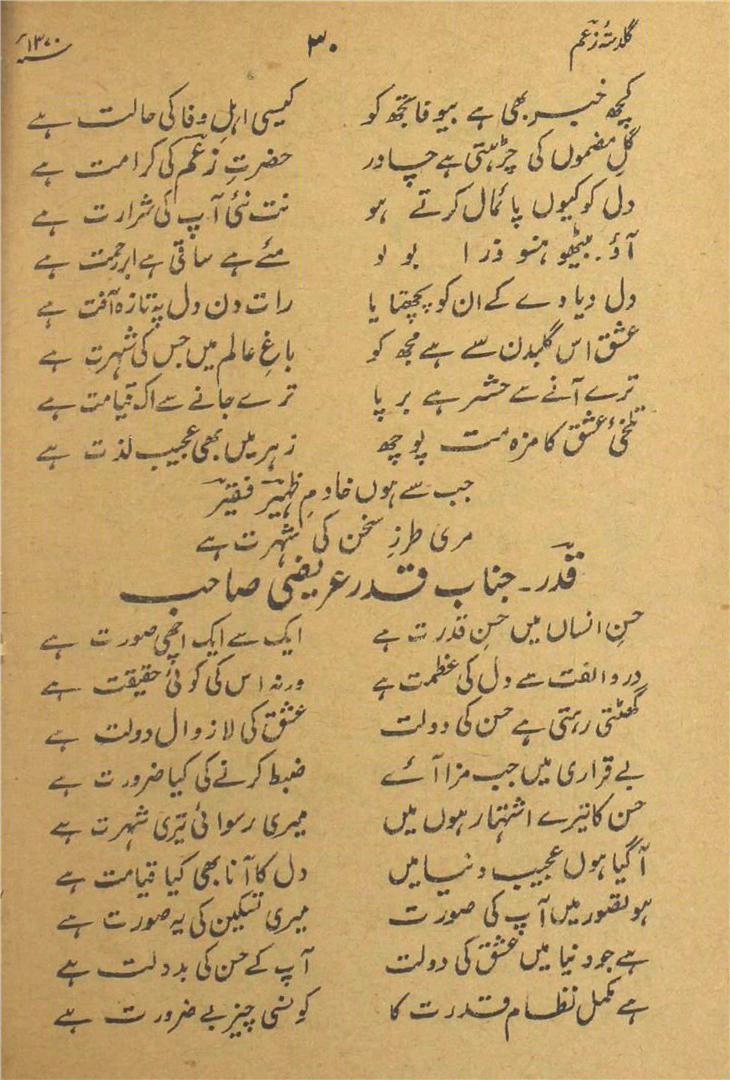 گلدستۂ زعم ۳۰ ۱۳۷۰
کچھ خبر بھی ہے بیوفا تجھ کو کیسی اہلِ وفا کی حالت ہے
گلِ مضموں کی چڑہتی ہے چادر حضرتِ زعم کی کرامت ہے
دل کو کیوں پائمال کرتے ہو نت نئی آپ کی شرارت ہے
آؤ۔ بیٹھو ہنسو ذرا بولو مئے ہے ساقی ہے ابرِ رحمت ہے
دل دیا دے کے ان کو پچھتایا رات دن دل پہ تازہ آفت ہے
عشق اس گلبدن سے ہے مجھ کو باغِ عالم میں جس کی شہرت ہے
ترے آنے سے حشر ہے برپا ترے جانے سے اک قیامت ہے
تلخئ عشق کا مزہ مت پوچھ زہر میں بھی عجیب لذت ہے
جب سے ہوں خادمِ ظہیر فقیر
مری طرزِ سخن کی شہرت ہے
قدر۔ جناب قدر عریضی صاحب
حسنِ انساں میں حسنِ قدرت ہے ایک سے ایک اچھی صورت ہے
درد الفت سے دل کی عظمت ہے ورنہ اس کی کوئی حقیقت ہے
گھٹتی رہتی ہے حسن کی دولت عشق کی لازوال دولت ہے
بے قراری میں جب مزا آئے ضبط کرنے کی کیا ضرورت ہے
حسن کا تیرے اشتہار ہوں میں میری رسوائی تیری شہرت ہے
آگیا ہوں عجیب دنیا میں دل کا آنا بھی کیا قیامت ہے
ہو تصور میں آپ کی صورت میری تسکین کی یہ صورت ہے
ہے جو دنیا میں عشق کی دولت آپ کے حسن کی بدولت ہے
ہے مکمل نظام قدرت کا کونسی چیز بے ضرورت ہے